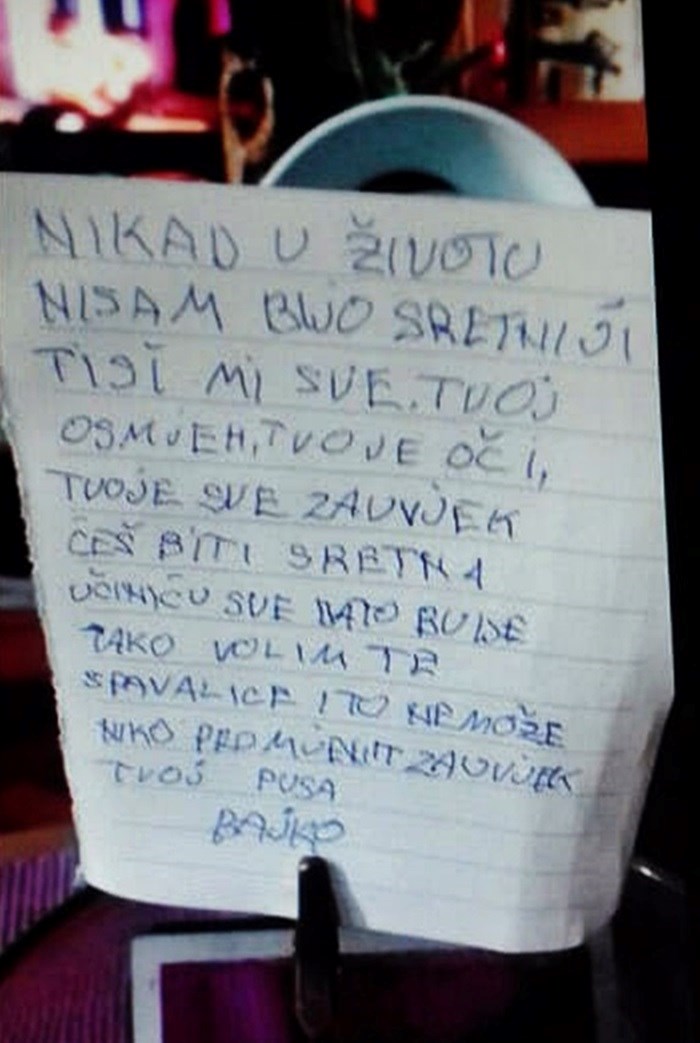 NIKAD U ŽIVOTU
NISAM BIJO SRETNIJI
TISI MI SVE. TVOJ
OSMJEH, TVOJE OČI,
TVOJE SVE ZAUVJEK
ĆEŠ BITI SRETNA
UČINIĆU SVE DATO BUDE
TAKO VOLIM TE
SPAVALICE I TO NEMOŽE
NIKO PROMJENIT ZAUVJEK
TVOJ PUSA
BAJKO